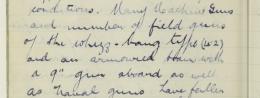 conditions. Many Machine Guns
and number of field guns
of the whizz-bang type (42)
and an armoured train with
a 9" gun aboard as well
as Naval guns have